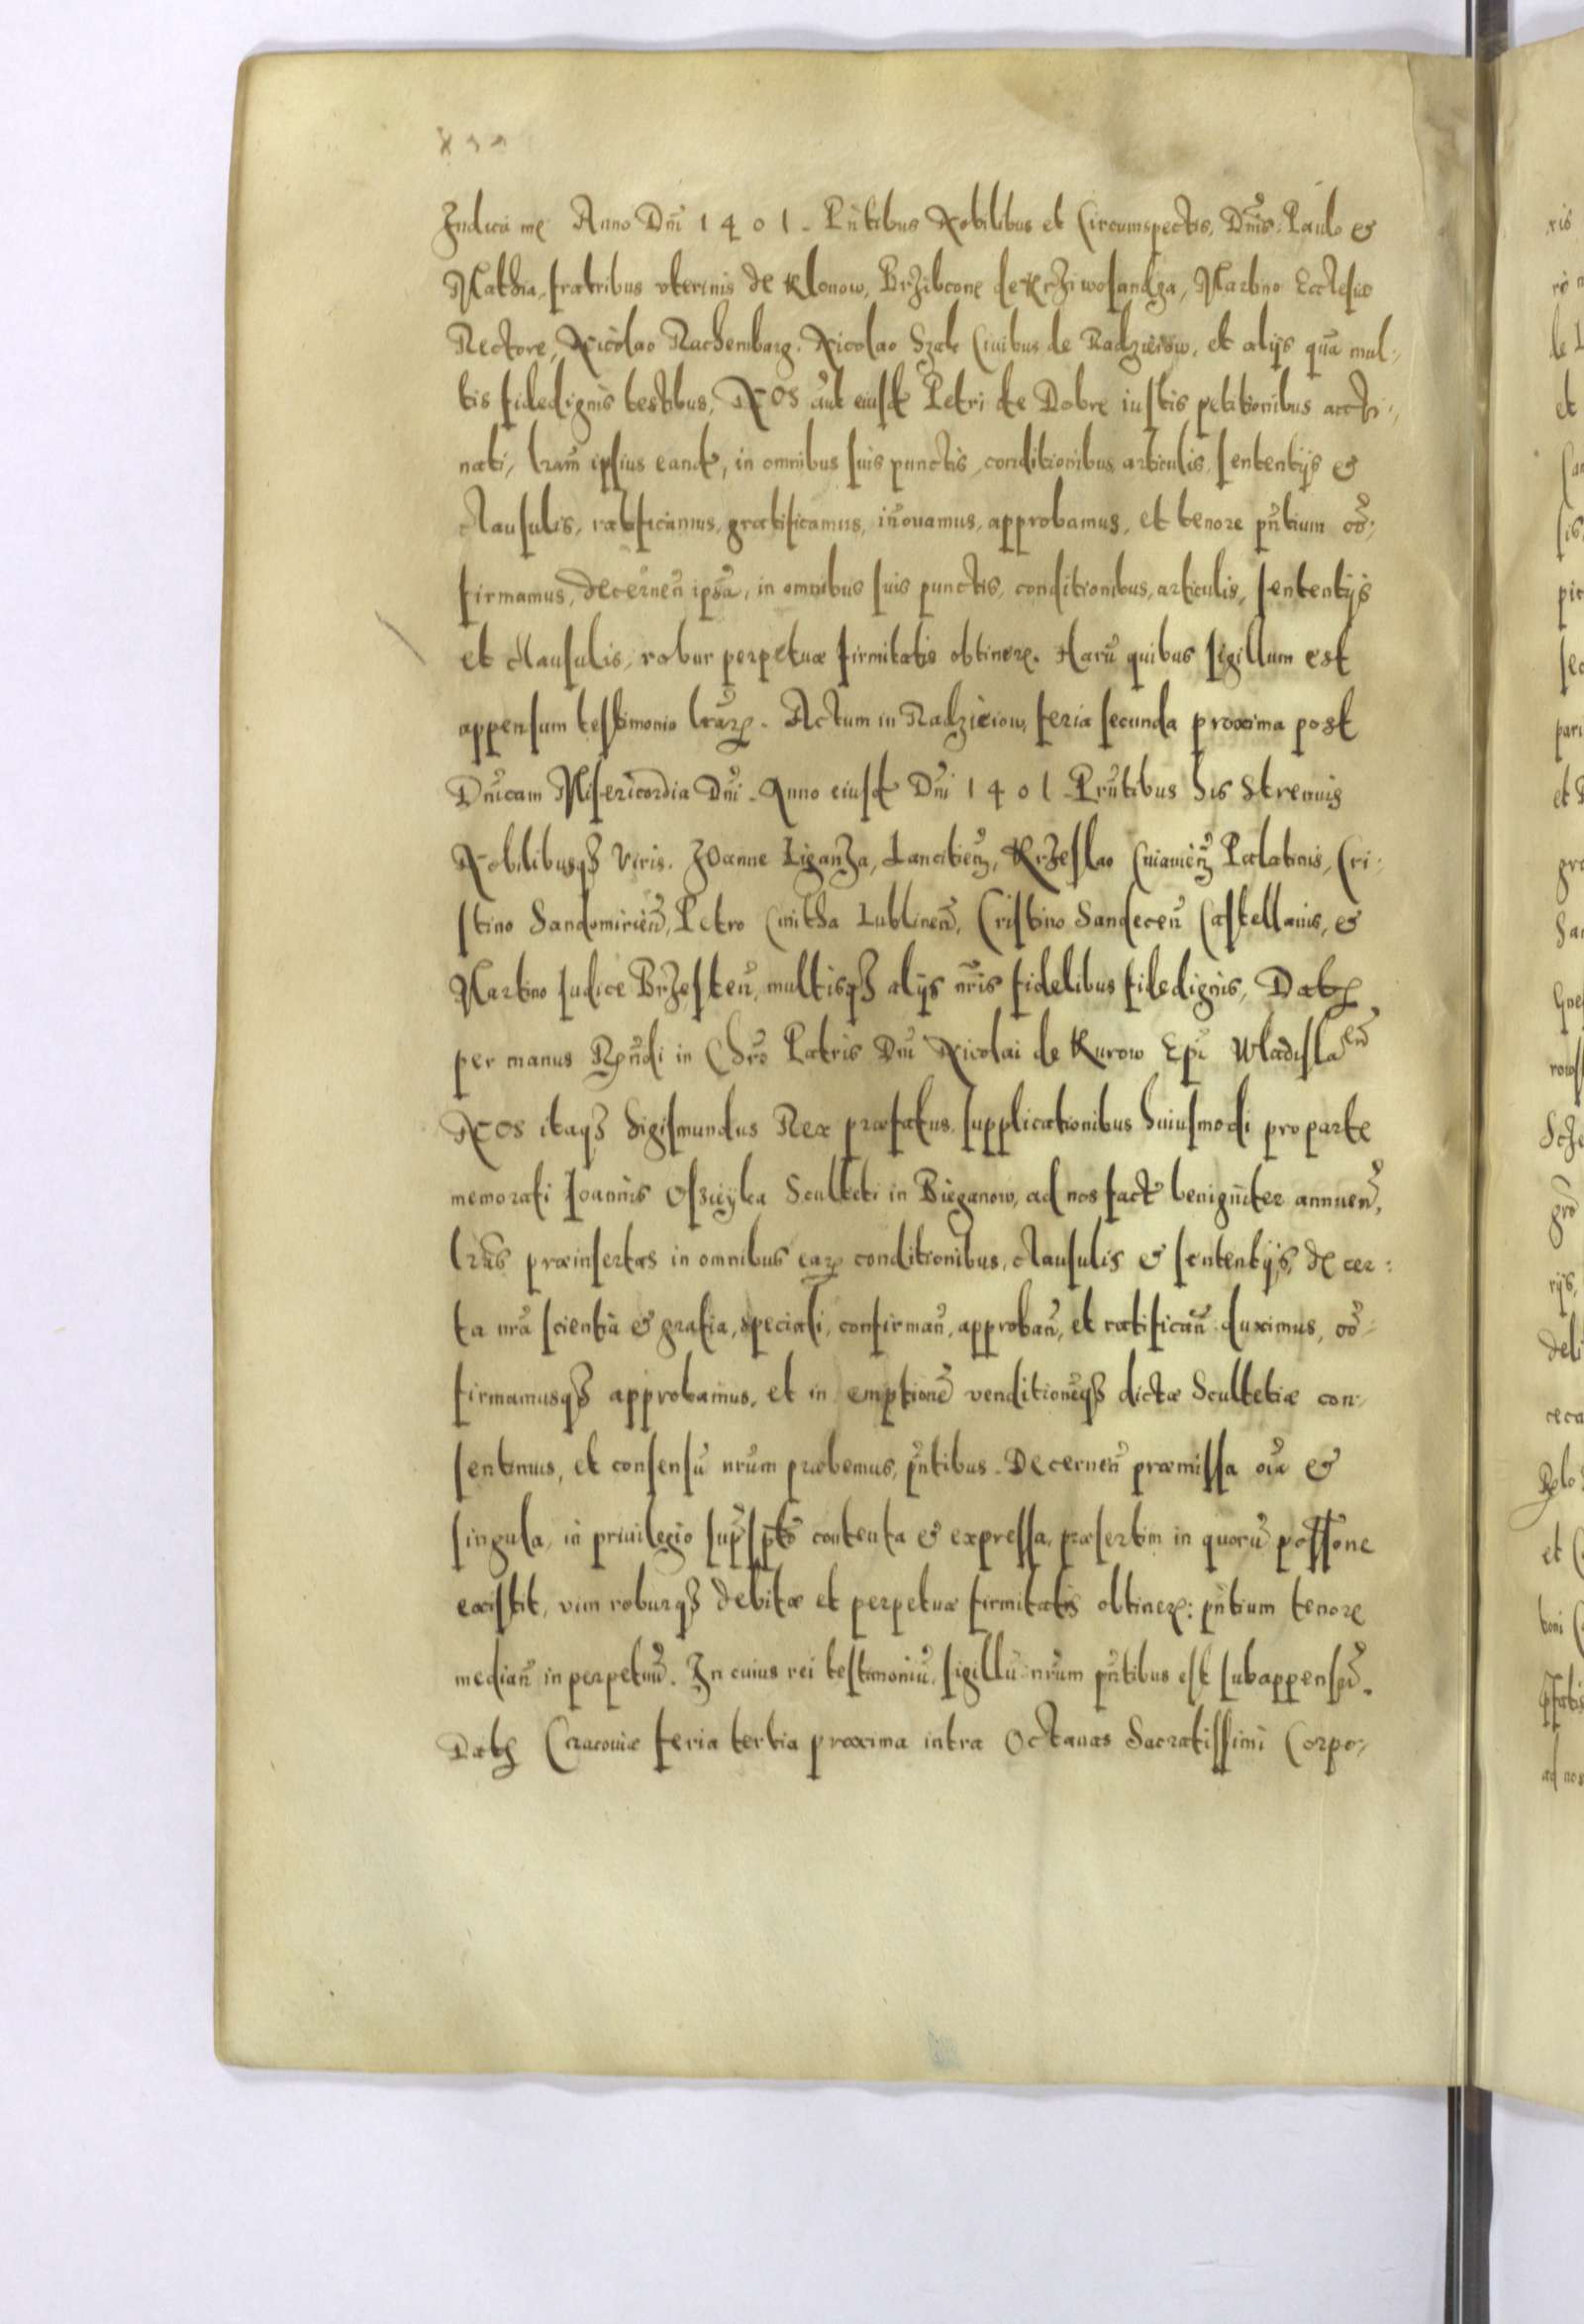 Indica me Anno Dñi 1401. Pñtibus Nobilibus et Circumspectis, Dñis, Paulo &
Mathia, fratribus vterinis de Klonow, Brzibcone de Krziwosandza, Martino Ecclesiæ
Rectore, Nicolao Rachembarg. Nicolao Szak Ciuibus de Radzieiow, et alijs quã mul:,
tis fidedignis testibus, NOS aũt eiusd Petri de Dobre iustis petitionibus accli:,
nati, lram̃ ipsius eand, in omnibus suis punctis, conditionibus articulis, sententijs &
clausulis, ratificamus, gratificamus, iñouamus, approbamus, et tenore pñtium cõ:,
firmamus, decerneñ ipsã, in omnibus suis punctis, conditionibus, articulis, sententijs
et clausulis, robur perpetuæ firmitatis obtinere. Harũ quibus sigillum est
appensum testimonio lrãrꝝ. Actum in Radzieiow, feria secunda proxima post
Dñicam Misericordia Dñi. Anno eiusd Dñi 1401. Pñtibus his Strenuis
Nobilibusqꝫ Viris. Joanne Liganza, Lancitieñ, Krzeslao Cuiauieñ Palatinis, Cri:
stino Sandomirieñ, Petro Cmitha Lublineñ, Cristino Sandeceñ Castellanis, &
Martino Iudice Brzesteñ, multisqꝫ alijs nr̃is fidelibus fidedignis, Datꝝ
per manus Rṇdi in Chr̃o Patris Dñi Nicolai de Kurow Epĩ Wladislaeñ
NOS itaqꝫ Sigismundus Rex præfatus, supplicationibus huiusmodi pro parte
memorati Ioannis Sculteti in Bieganow, ad nos fact benigniter annueñ,
lrãs præinsertas in omnibus earꝝ conditionibus, clausulis & sententijs, de cer:
ta nrã scientia & gratia, speciali, confirmañ, approbañ, et ratificañ duximus, cõ:
firmamusqꝫ approbamus, et in emptionẽ venditionẽqꝫ dictæ Scultetiæ con:,
sentimus, et consensũ nrũm præbemus, pñtibus. Decerneñ præmissa oĩa &
singula, in priuilegio contenta & expressa, præsertim in quorũ possone
existit, vim roburqꝫ debitæ et perpetuæ firmitatis obtinere: pñtium tenore
mediañ in perpetuũ. In cuius rei testimoniũ, sigillũ nrũm pñtibus est subappensũ.
Datꝫ Cracouiæ feria tertia proxima intra Octauas Sacratissimi Corpo:,